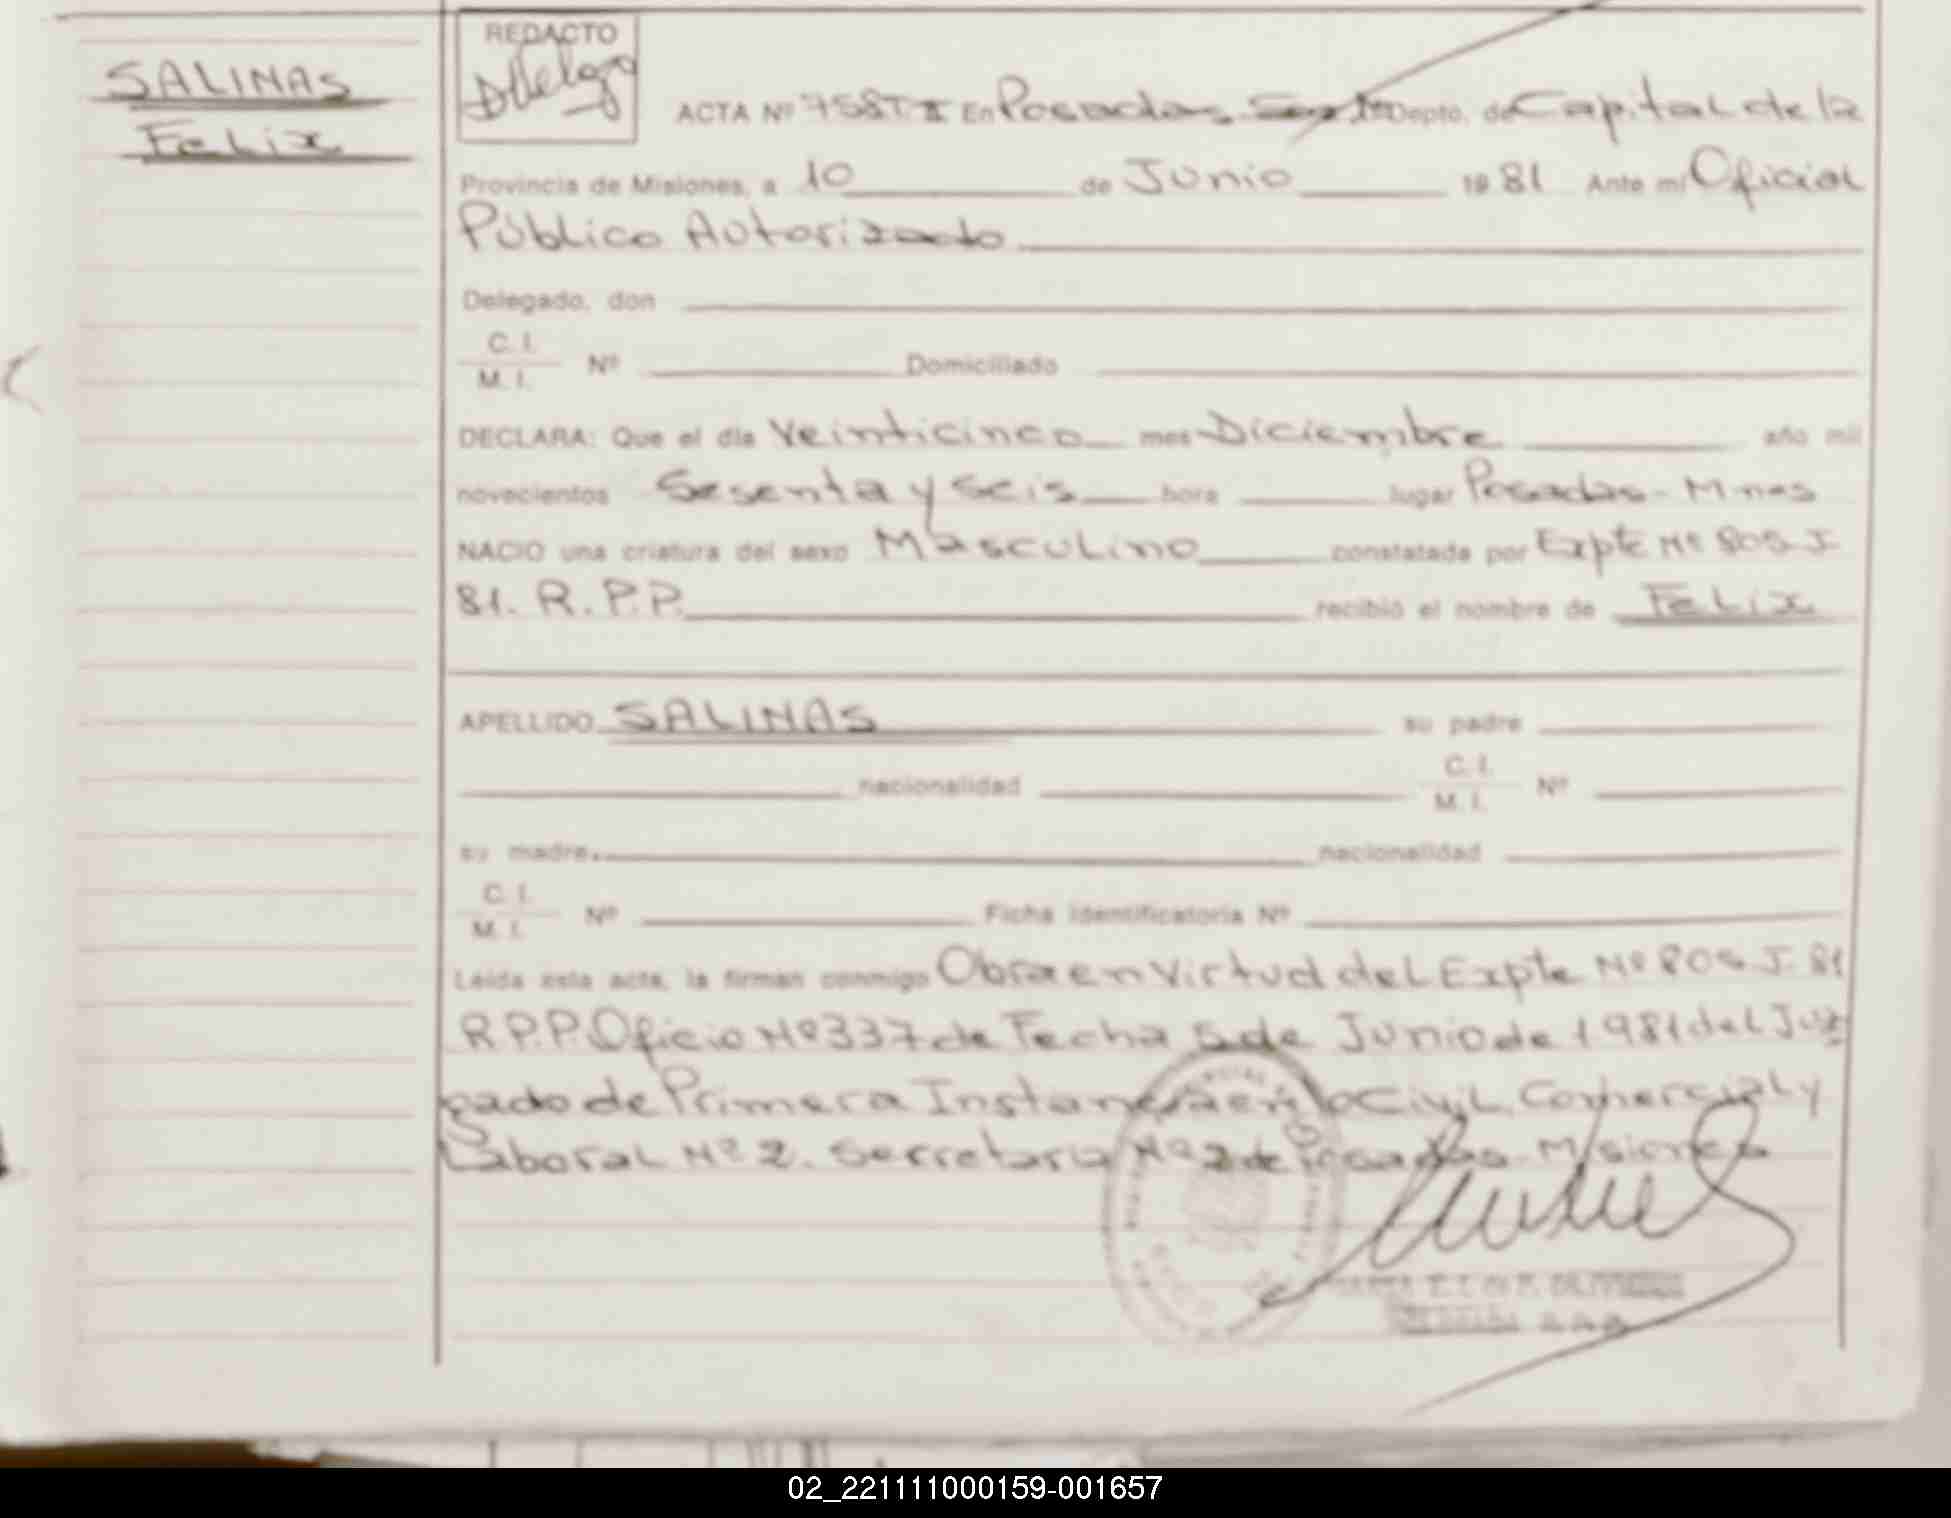 SALINAS
Felix
REDACTO
ACTA Nº 758 T. II En Posadas Depto. de Capital de la
Provincia de Misiones, a 10 de Junio 1981 Ante mí Oficial
Público Autorizado
Delegado, don
C. I.
M. I. Nº Domiciliado
DECLARA: Que el día Veinticinco mes Diciembre año mil
novecientos Sesenta y Seis hora lugar Posadas - Mnes
NACIO una criatura del sexo Masculino constatada por Expte Nº 805-J-
81. R.P.P. recibió el nombre de Felix
APELLIDO SALINAS su padre
nacionalidad C. I.
M. I. Nº
su madre nacionalidad
C. I.
M. I. Nº Ficha Identificatoria Nº
Leída esta acta, la firman conmigo Obra en virtud del Expte Nº 805-J-81
R.P.P. Oficio Nº 337 de Fecha 5 de Junio de 1981 del Juz
gado de Primera Instancia en lo Civil, Comercial y
Laboral Nº 2. Secretaria Nº 2 de Posadas - Misiones
02_221111000159-001657